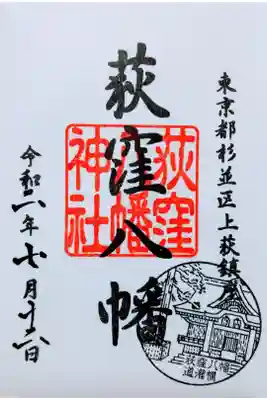 東京都杉並区上荻鎮座
荻窪八幡
荻窪
八幡
神社
令和六年七月十六日
荻窪八幡
道灌槇